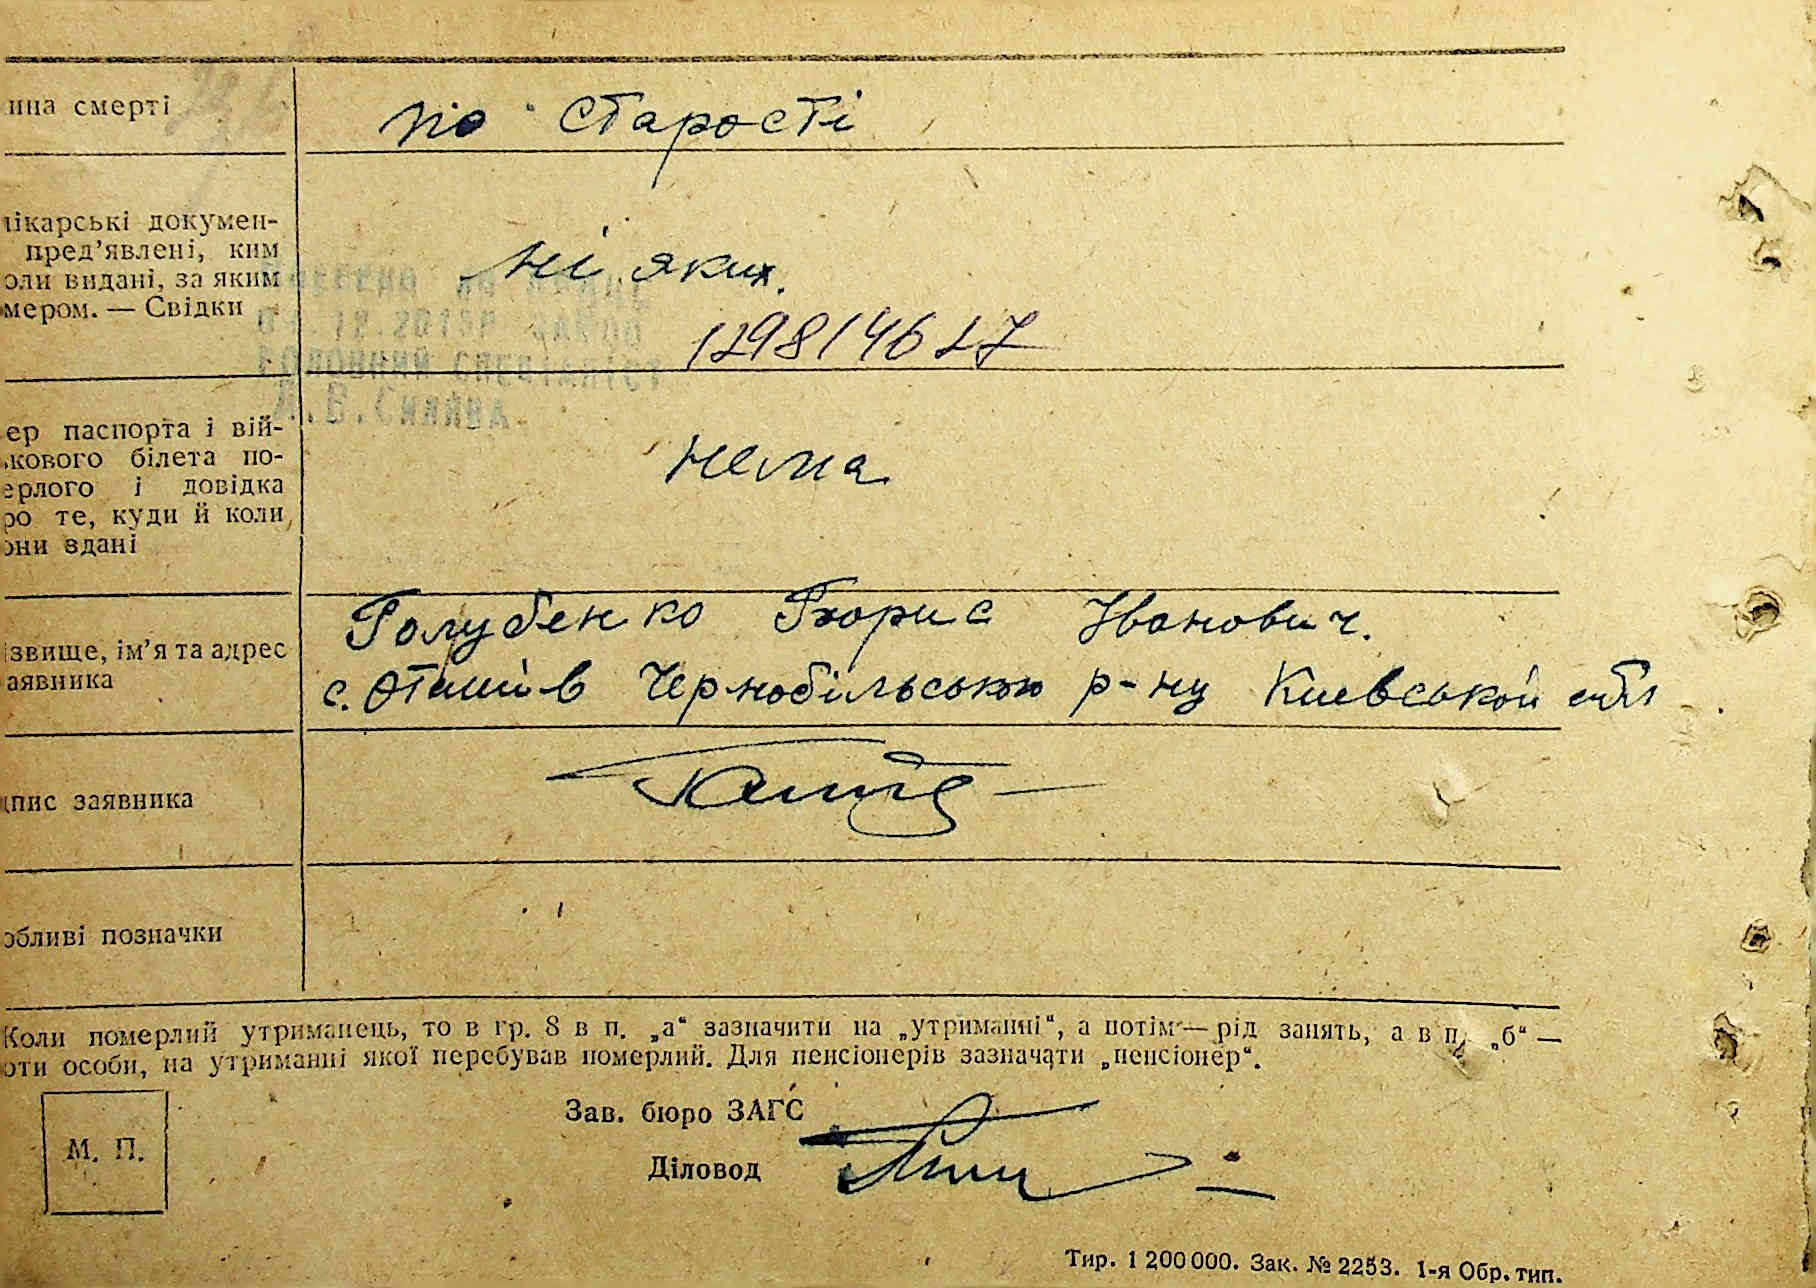 ина смерті
по старості
лікарські докумен-
пред’явлені, ким
оли видані, за яким
мером. — Свідки
ні яких.
12.2015р.
головний спеціаліст
В.
129814627
ер паспорта і вій-
кового білета по-
ерлого і довідка
ро те, куди й коли
они здані
нема
звище, ім’я та адрес
аявника
Голубенко Борис Іванович.
с. Оташів Чернобільського р-ну Киевськой обл
пис заявника
обливі позначки
Коли померлий утриманець, то в гр. 8 в п. „а“ зазначити на „утриманні“, а потім — рід занять, а в п. „б“ —
оти особи, на утриманні якої перебував померлий. Для пенсіонерів зазначати „пенсіонер“.
М. П.
Зав. бюро ЗАГС
Діловод
Тир. 1 200 000. Зак. № 2253. 1-я Обр. тип.